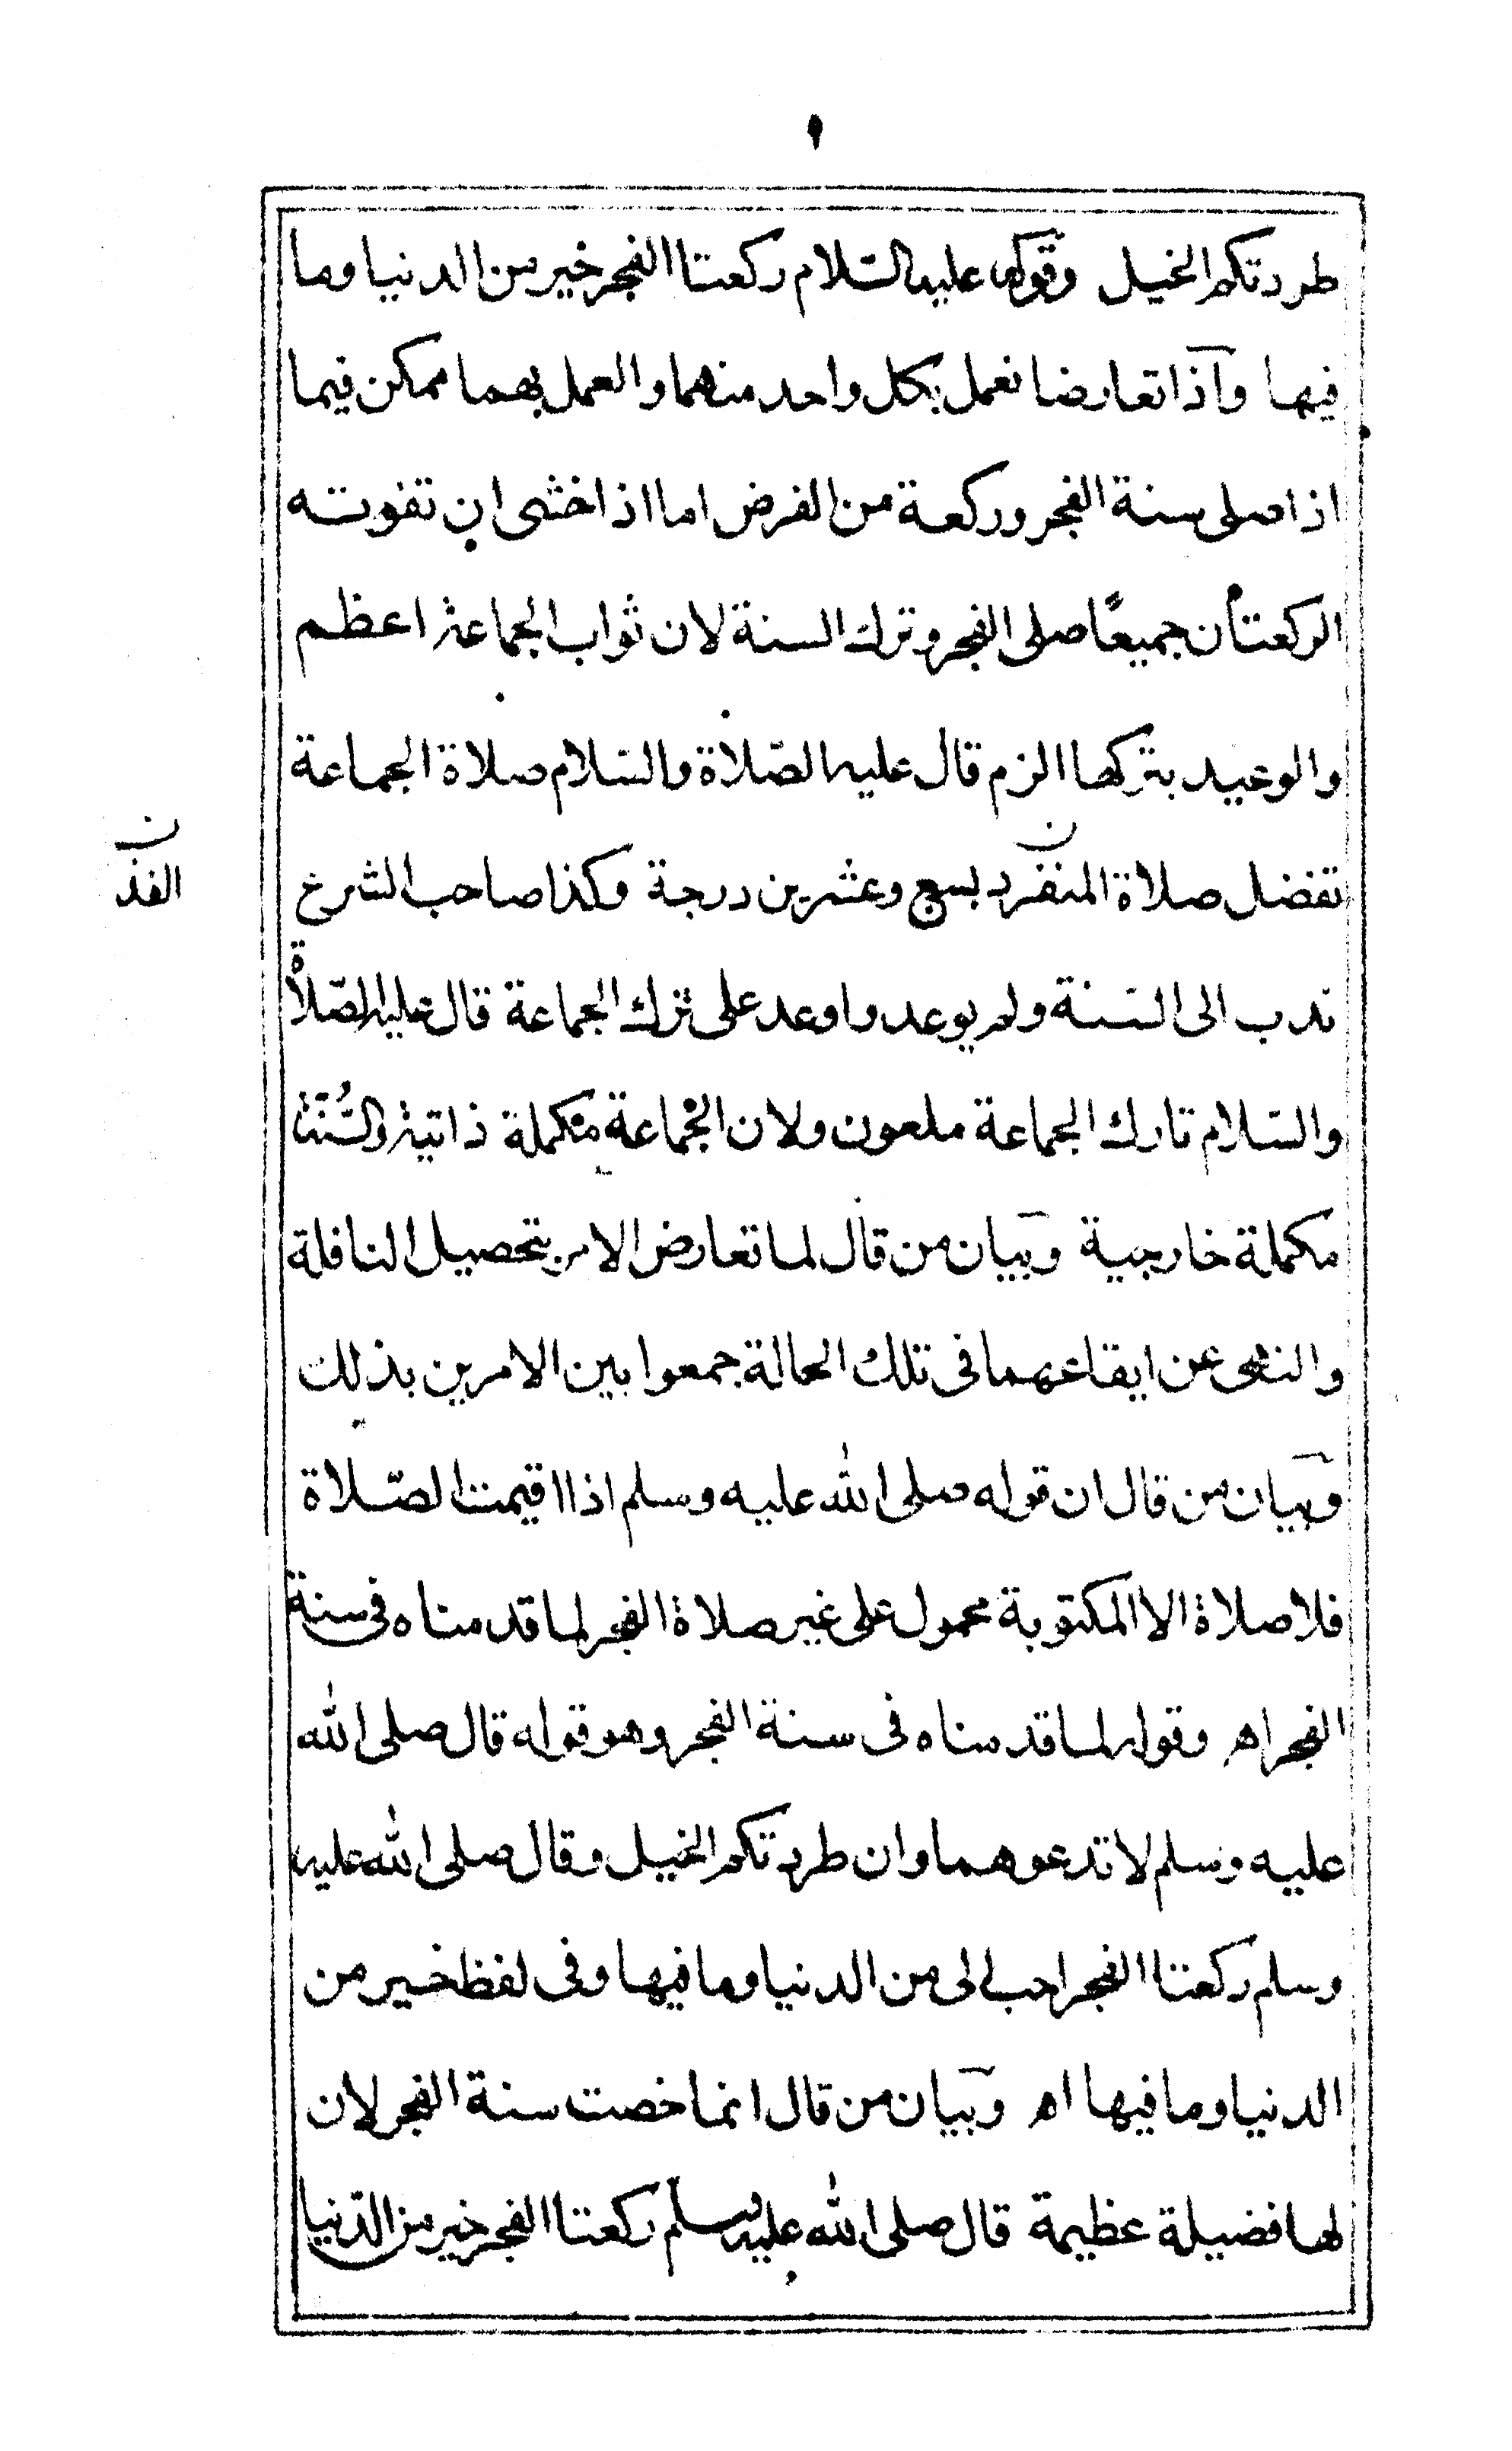 ٩
طردتكم الخيل وقوله عليه السّلام ركعتا الفجر خير من الدنيا وما
فيها واذا تعارضا نعمل بكل واحد منهما والعمل بهما ممكن فيما
اذا صلى سنة الفجر وركعة من الفرض اما اذا خشى ان تفوته
الركعتان جميعًا صلى الفجر وترك السنة لان ثواب الجماعة اعظم
والوعيد بتركها الزم قال عليه الصّلاة والسّلام صلاة الجماعة
تفضل صلاة المنفرد بسبع وعشرين درجة وكذا صاحب الشرع
ن
الفذ
ندب الى السّنة ولم يوعد واوعد على ترك الجماعة قال عليه الصّلاة
والسّلام تارك الجماعة ملعون ولان الجماعة مكملة ذاتية والسُّنّة
مكملة خارجية وبيان من قال لما تعارض الامر بتحصيل النافلة
والنهى عن ايقاعهما فى تلك الحالة جمعوا بين الامرين بذلك
وبيان من قال ان قوله صلى الله عليه وسلم اذا اقيمت الصّلاة
فلا صلاة الا المكتوبة محمول على غير صلاة الفجر لما قدمناه فى سنة
الفجر اهـ وقوله لما قدمناه فى سنة الفجر وهو قوله قال صلى الله
عليه وسلم لا تدعوهما وان طردتكم الخيل وقال صلى الله عليه
وسلم ركعتا الفجر احب الى من الدنيا وما فيها وفى لفظ خير من
الدنيا وما فيها اهـ وبيان من قال انما خصت سنة الفجر لان
لها فضيلة عظيمة قال صلى الله عليه وسلم ركعتا الفجر خير من الدّنيا